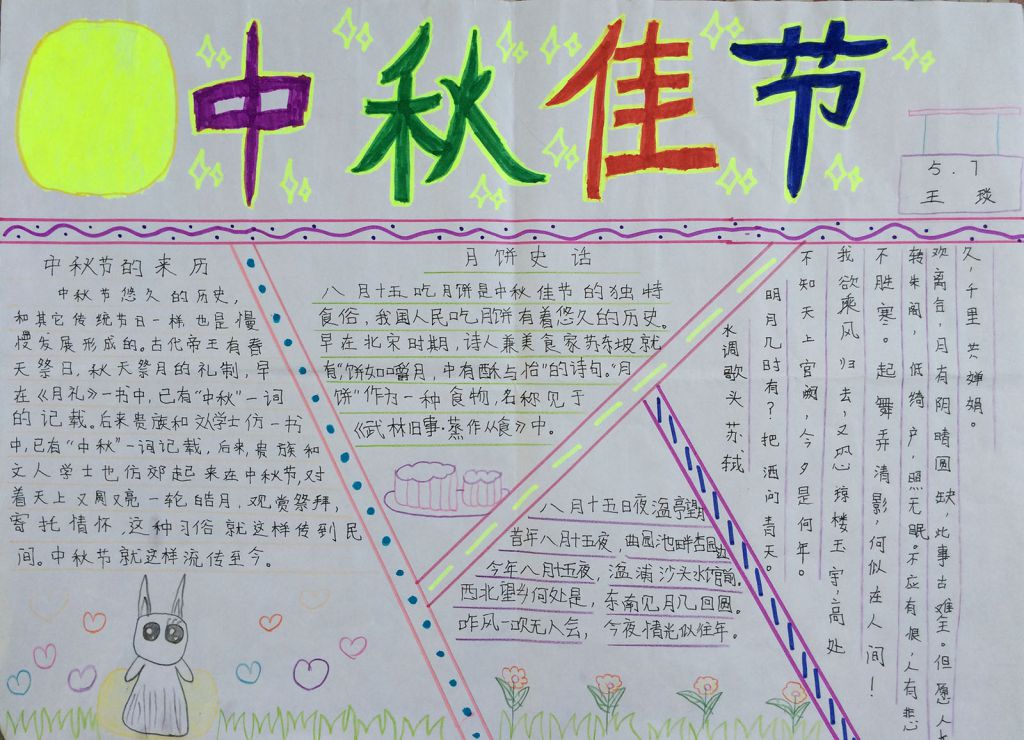 中秋佳节
5.7
王琰
中秋节的来历
中秋节悠久的历史，
和其它传统节日一样也是慢
慢发展形成的。古代帝王有春
天祭日，秋天祭月的礼制，早
在《月礼》一书中，已有“中秋”一词
的记载。后来贵族和文学士仿一书
中，已有“中秋”一词记载，后来，贵族和
文人学士也仿郊起来在中秋节，对
着天上又圆又亮一轮皓月，观赏祭拜，
寄托情怀，这种习俗就这样传到民
间。中秋节就这样流传至今。
月饼史话
八月十五吃月饼是中秋佳节的独特
食俗，我国人民吃月饼有着悠久的历史。
早在北宋时期，诗人兼美食家苏东坡就
有“饼如嚼月，中有酥与饴”的诗句。“月
饼”作为一种食物，名称见于
《武林旧事·蒸作从食》中。
八月十五日夜湓亭望月
昔年八月十五夜，曲园池畔杏园边
今年八月十五夜，湓浦沙头水馆前。
西北望乡何处是，东南见月几回圆。
昨风一吹无人会，今夜情光似往年。
水调歌头 苏轼
明月几时有？把酒问青天。
不知天上宫阙，今夕是何年。
我欲乘风归去，又恐琼楼玉宇，高处
不胜寒。起舞弄清影，何似在人间！
转朱阁，低绮户，照无眠。不应有恨，人有悲
欢离合，月有阴晴圆缺，此事古难全。但愿人长
久，千里共婵娟。